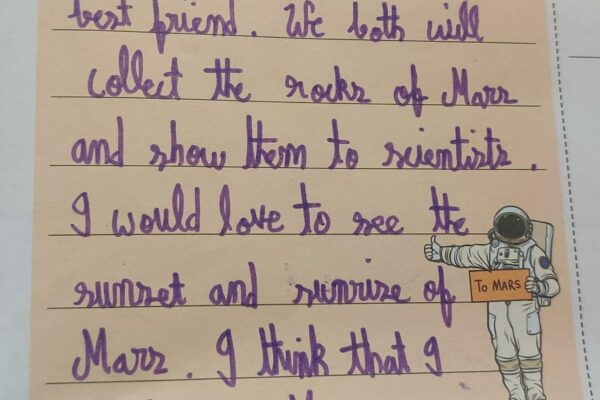 best friend. We both will
collect the rocks of Mars
and show them to scientists.
I would love to see the
sunset and sunrise of
To MARS
Mars. I think that I